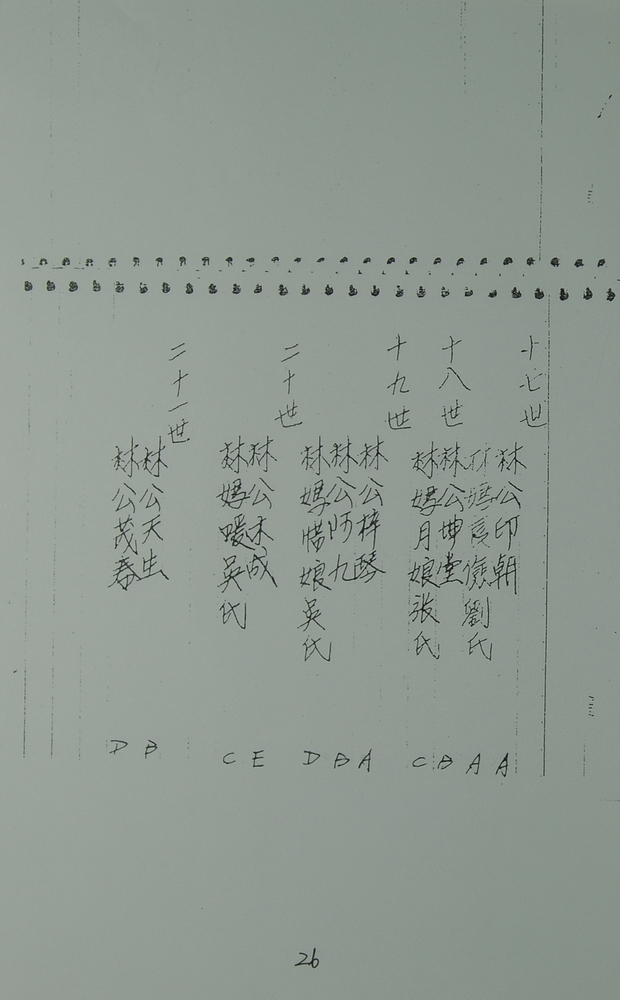 十七世
林公印朝 A
林媽良儉劉氏 A
十八世
林公坤堂 B
林媽月娘張氏 C
十九世
林公梓琴 A
林公阿九 B
林媽惜娘吳氏 D
二十世
林公木成 E
林媽暖吳氏 C
二十一世
林公天生 B
林公茂春 D
26